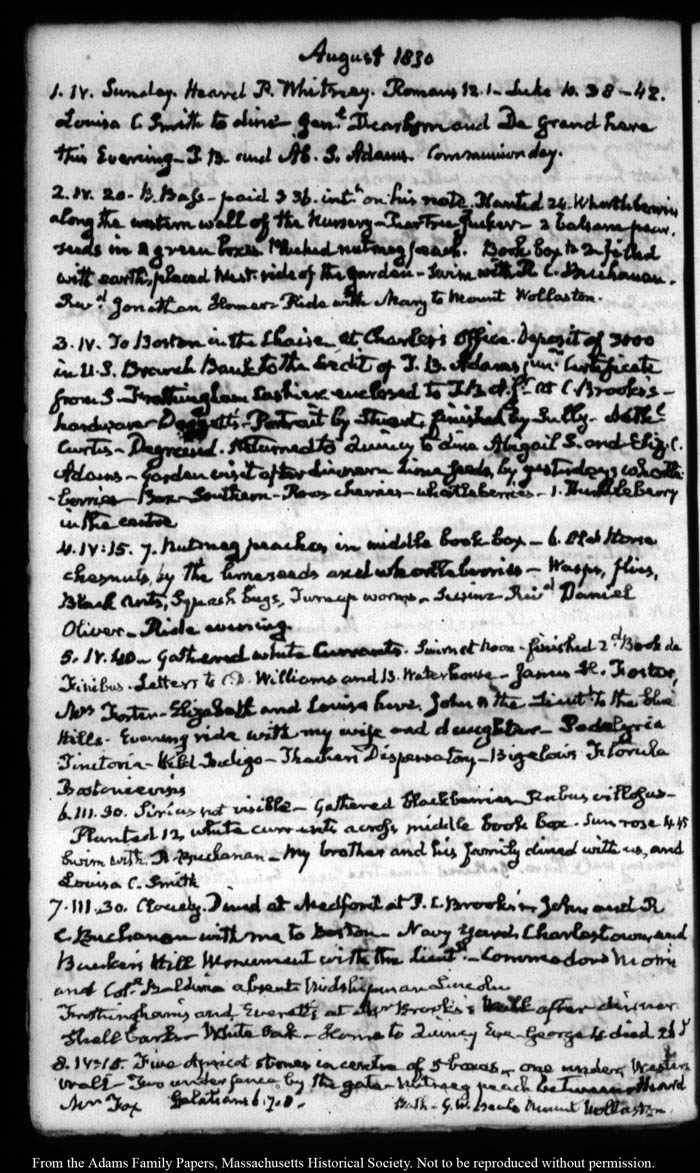 August 1830
1. IV. Sunday. Heard P. Whitney. Romans 12.1. Luke 10. 38-42.
Louisa C. Smith to dine. Genl. Dearborn and De grand here
this Evening. T. B. and Ab. S. Adams. Communion day.
2. IV. 20. B. Bass - paid 336. intt. on his note. Planted 24. Whortleberries
along the western wall of the Nursery - 2 balsam pear
seeds in 2 green boxes nutmeg peach. Book box N. 2 filled
with earth, placed West side of the garden - Swim with R. C. Buchanan.
Revd. Jonathan Homer - Ride with Mary to Mount Wollaston.
3. IV. To Boston in the Chaise at Charles's Office. Deposit of 3000
in U.S. Branch Bank to the Credit of T. B. Adams junr. Certificate
from S. Frothingham Cashier enclosed to T.B.A. jr. at C. Brooks's -
hardware Doggett's - Portrait by Stuart, finished by Sully -
Curtis - Degrand. Returned to Quincy to dine Abigail S. and Eliz. C.
Adams - Garden visit after dinner lime seeds, by yesterday's whortle
-berries - Box Southern - Rows cherries - whortleberries - 1. Thimbleberry
in the centre
4. IV:15. 7. Nutmeg peaches, in middle book box - 6. Old Horse
chesnuts, by the limeseeds and whortleberries - Wasps, flies,
Black ants, Squash bugs, Turnup worms. Revd. Daniel
Oliver - Ride evening.
5. IV. 40. Gathered white Currants. Swim at Noon - finished 2d. Book de
Finibus. Letters to D. Williams and B. Waterhouse - James H. Foster,
Mrs. Foster - Elizabeth and Louisa here. John & the Lieutt. to the blue
Hills - Evening ride with my wife and daughter - Podalyria
Tinctoria - Wild Indigo - Thacher's Dispensatory - Bigelow's Florula
Bostoniensis
6. III. 30. Sirius not visible - Gathered blackberries Rubus villosus -
Planted 12, white currants across middle book box. Sun rose 4.45
Swim with R. Buchanan - My brother and his family dined with us, and
Louisa C. Smith
7. III. 30. Cloudy. Dined at Medford at P. C. Brooks's - John and R
C. Buchanan with me to Boston - Navy Yard, Charlestown, and
Bunker's Hill Monument with the Lieutt. - Commodore Morris
and Coll. Baldwin absent Midshipman Lincoln
Frothinghams and Everetts at Mr. Brooks's Walk after dinner
Shell barks - White Oak - Home to Quincy Eve George 4 died
8. IV:15. Five Apricot stones in centre of 5 boxes - one under Western
wall - Two under fence by the gate - Nutmeg peach between Heard
Mr. Fox Galatians 6. 7. 8. Bath - G. W. Beale Mount Wollaston.
From the Adams Family Papers, Massachusetts Historical Society. Not to be reproduced without permission.